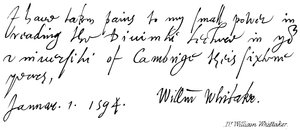 I have taken pains to my small power in
breading the Divinity lecture in yoᵘ
universitie of Cambrige this sixtene
yeares,
Januar. 1. 1594.
Willm̄ Whitaker.
Dr William Whittaker.